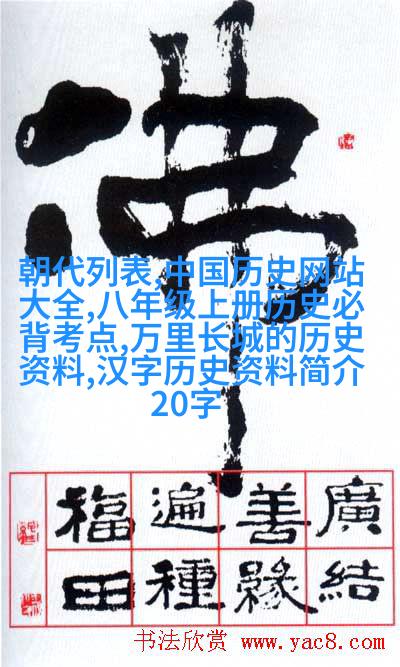 佛
朝代列表,中国历史网站
大全,八年级上册历史必
背考点,万里长城的历史
资料,汉字历史资料简介
20字
廣結
善緣
遍種
福田
书法欣赏 www.yac8.com